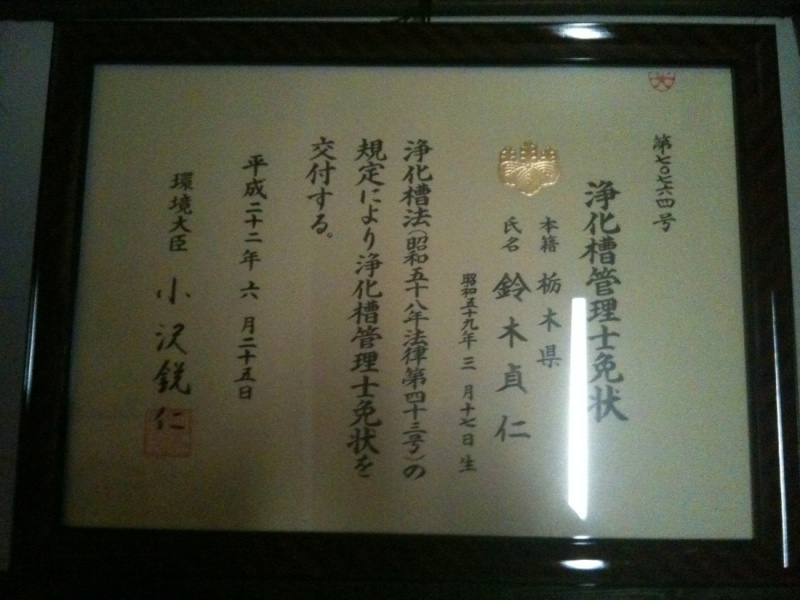 第七〇七六四号
浄化槽管理士免状
本籍 栃木県
氏名 鈴木貞仁
昭和五十九年 三 月十七日 生
浄化槽法(昭和五十八年法律第四十三号)の
規定により浄化槽管理士免状を
交付する。
平成二十二年 六 月二十五日
環境大臣 小沢鋭仁